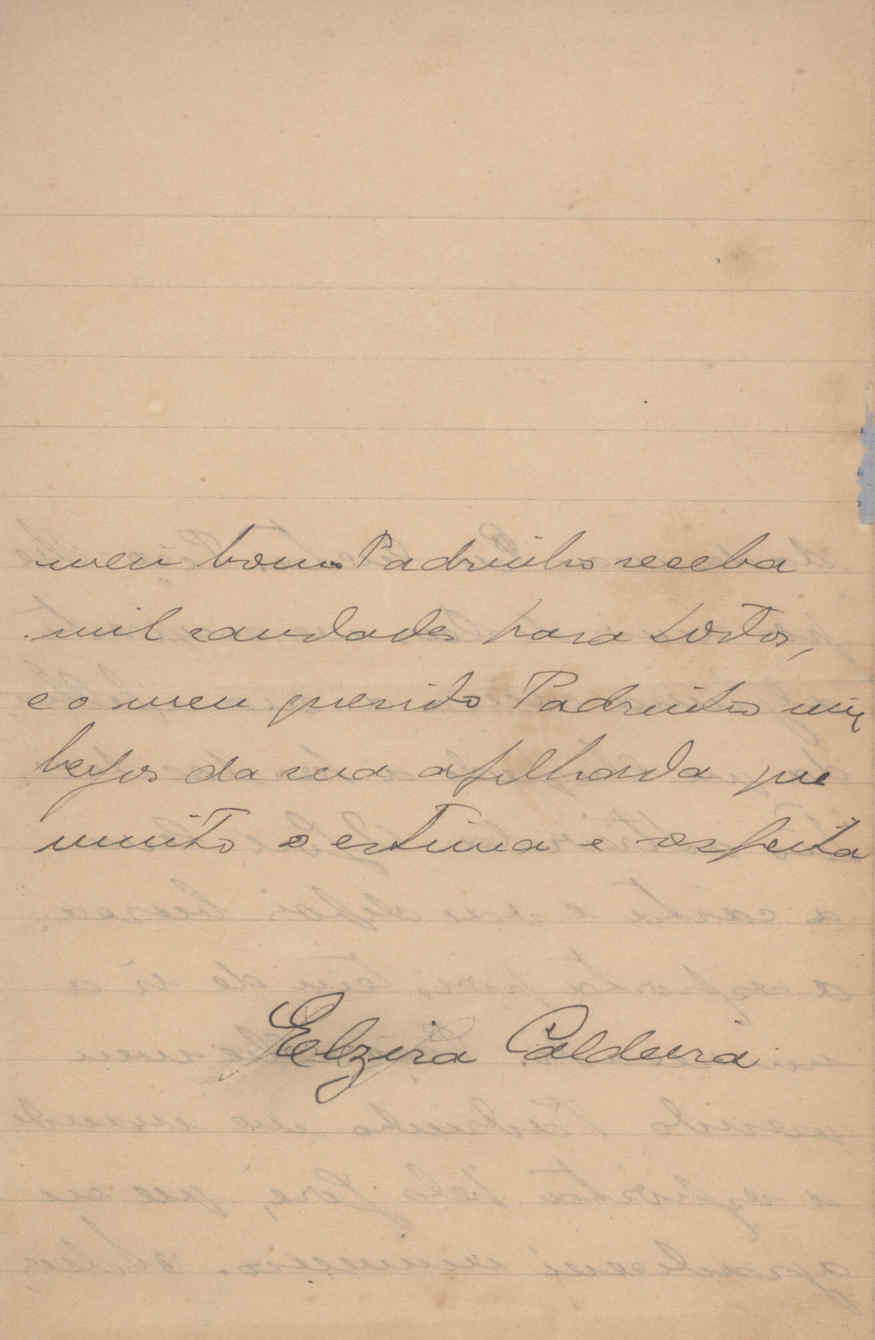 meu bom Padrinho receba
mil saudades para todos,
e o meu querido Padrinho mil
beijos da sua afilhada que
muito o estima e respeita
Elzira Caldeira